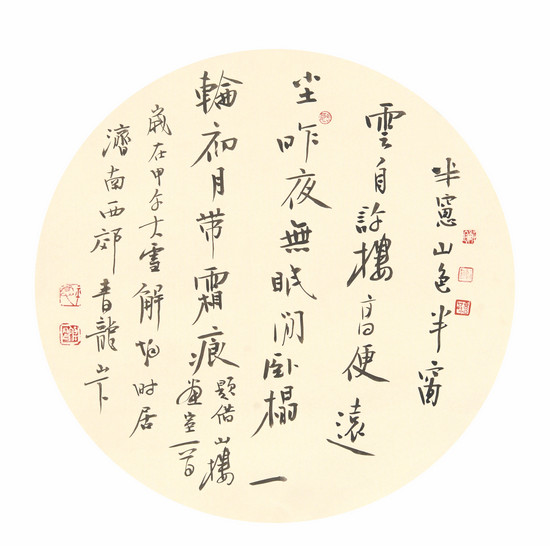 半窻山色半窗
雲自許樓高便遠
尘昨夜無眠閒臥榻一
輪初月带霜痕
題借山樓
畫室一首
歲在甲午大雪解时居
濟南西郊青龍山下